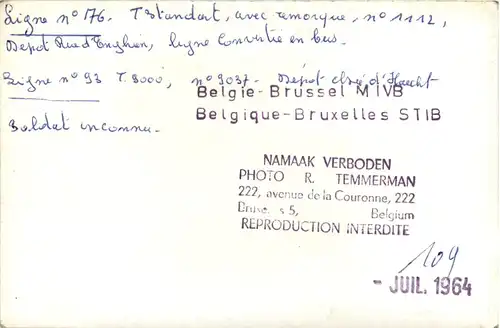 Ligne n° 176. T standart, avec remorque, n° 1112,
Depot Rue d'Enghien, ligne convertie en bus.
Ligne n° 93 T. 9000, n° 9037. Dépôt chée d'Haecht
Belgie-Brussel MIVB
Belgique-Bruxelles STIB
Soldat inconnu.
NAMAAK VERBODEN
PHOTO R. TEMMERMAN
222, avenue de la Couronne, 222
Bruxe s 5, Belgium
REPRODUCTION INTERDITE
109
- JUIL. 1964